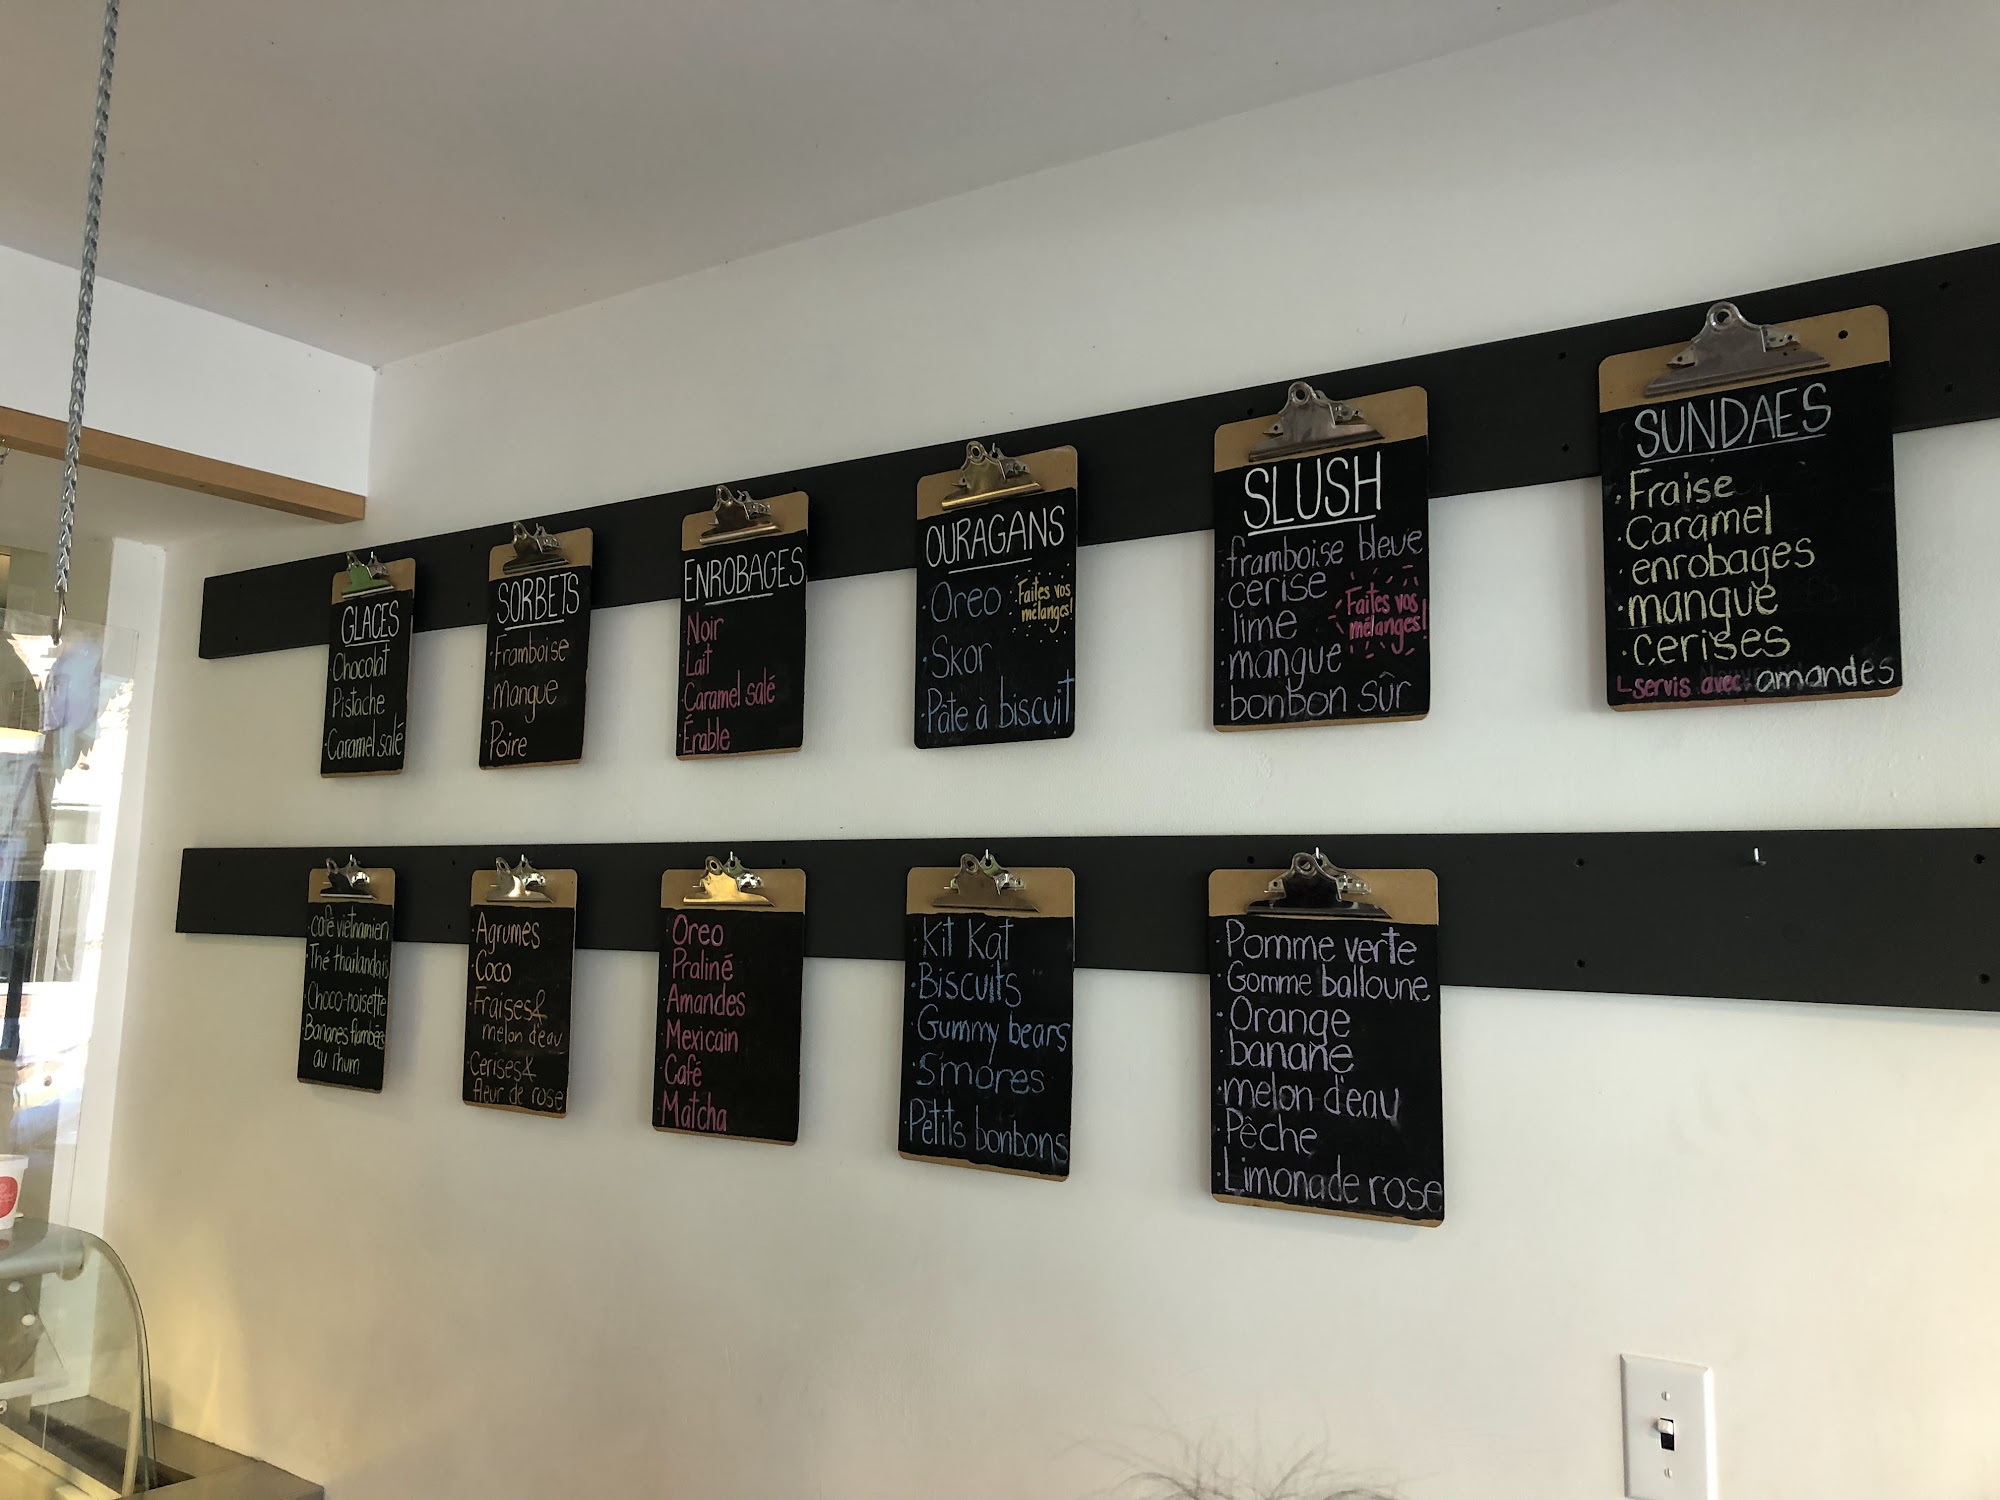 GLACES
· Chocolat
· Pistache
· Caramel salé
SORBETS
· Framboise
· mangue
· Poire
ENROBAGES
· Noir
· Lait
· Caramel salé
· Érable
OURAGANS
· Oreo
Faites vos
mélanges!
· Skor
· Pâte à biscuit
SLUSH
· framboise bleue
· cerise
· lime
Faites vos
mélanges!
· mangue
· bonbon sûr
SUNDAES
· Fraise
· Caramel
· enrobages
· mangue
· cerises
servis avec amandes
· café vietnamien
· Thé thailandais
· Choco-noisette
· Bananes flambées
au rhum
· Agrumes
· Coco
· Fraises &
melon d'eau
· Cerises &
fleur de rose
· Oreo
· Praliné
· Amandes
· Mexicain
· Café
· Matcha
· Kit Kat
· Biscuits
· Gummy bears
· S'mores
· Petits bonbons
· Pomme verte
· Gomme balloune
· Orange
· banane
· melon d'eau
· Pêche
· Limonade rose